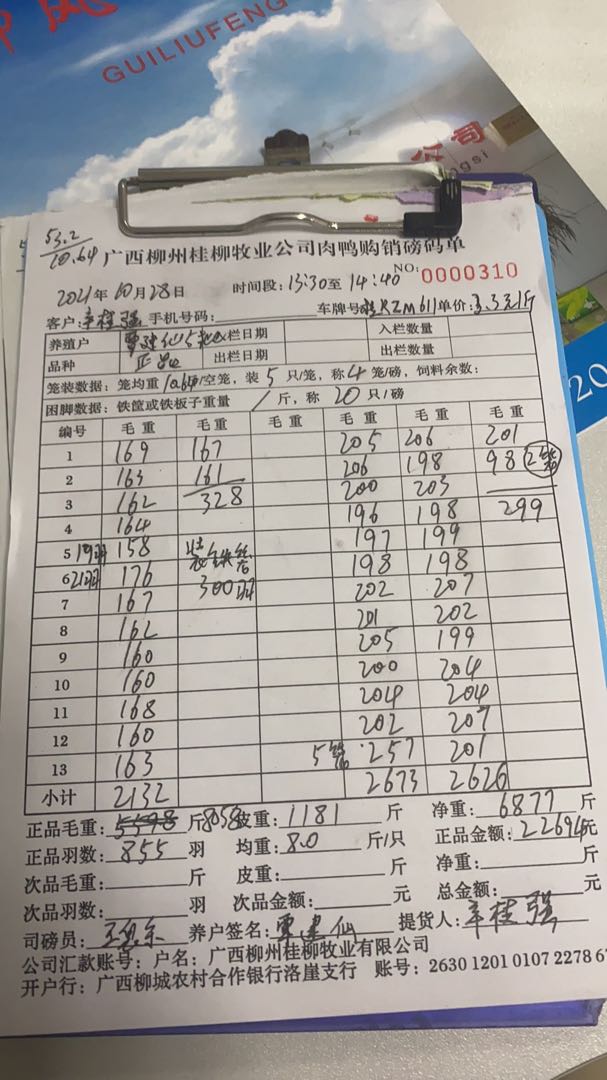 GUILIUFENG
公司
gsi
53.2
10.64
广西柳州桂柳牧业公司肉鸭购销磅码单
2021年10月28日 时间段：13:30至14:40 NO: 0000310
客户：辛桂强 手机号码： 车牌号 桂KZM611 单价：3.3元/斤
养殖户 覃建仙 出栏日期 入栏数量
品种 正品 出栏日期 出栏数量
笼装数据：笼均重10.64/空笼，装5只/笼，称4笼/磅，饲料余数：
困脚数据：铁筐或铁板子重量 / 斤，称20只/磅
编号 毛重 毛重 毛重 毛重 毛重 毛重
1 169 167 205 206 201
2 163 161 206 198 98 2笼
3 162 328 200 203
4 164 196 198 299
5 19羽 158 197 199
6 21羽 176 300羽 198 198
7 167 202 207
8 162 201 202
9 160 205 199
10 160 200 204
11 168 204 204
12 160 202 207
13 163 5笼 257 201
小计 2132 2673 2626
正品毛重：5598斤 8058 皮重：1181斤 净重：6877斤
正品羽数：855羽 均重：8.0斤/只 正品金额：22694元
次品毛重： 斤 皮重： 斤 净重： 斤
次品羽数： 羽 次品金额： 元 总金额： 元
司磅员： 养户签名：覃建仙 提货人：辛桂强
公司汇款账号：户名：广西柳州桂柳牧业有限公司
开户行：广西柳城农村合作银行洛崖支行 账号：2630 1201 0107 2278 6
20